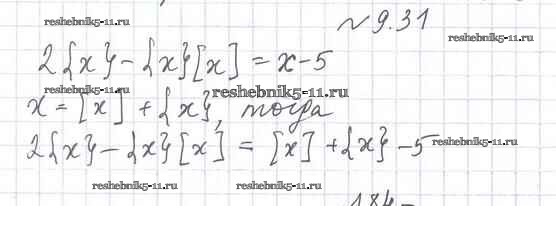 reshebnik5-11.ru
№ 9.31
reshebnik5-11.ru
2{x} - {x}[x] = x - 5
reshebnik5-11.ru
reshebnik5-11.ru
x = [x] + {x}, тогда
2{x} - {x}[x] = [x] + {x} - 5
reshebnik5-11.ru
reshebnik5-11.ru
reshebnik5-11.ru